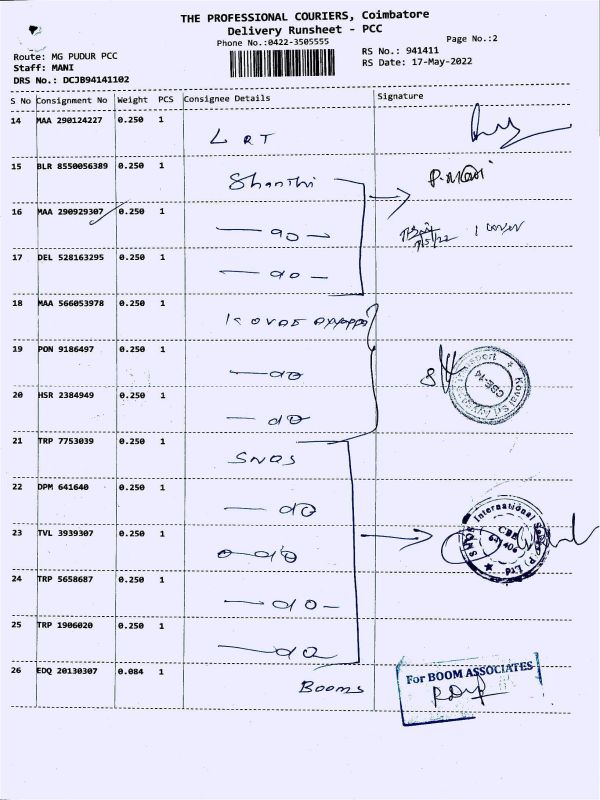 THE PROFESSIONAL COURIERS, Coimbatore
Delivery Runsheet - PCC
Phone No.:0422-3505555
Page No.:2
Route: MG PUDUR PCC
RS No.: 941411
Staff: MANI
RS Date: 17-May-2022
DRS No.: DCJB94141102
S No Consignment No Weight PCS Consignee Details Signature
14 MAA 290124227 0.250 1
L R T
15 BLR 8550056389 0.250 1
Shanthi
16 MAA 290929307 0.250 1
— do —
1 cover
17 DEL 528163295 0.250 1
— do —
18 MAA 566053978 0.250 1
KOVAE
19 PON 9186497 0.250 1
— do
20 HSR 2384949 0.250 1
— do
CBE-14
21 TRP 7753039 0.250 1
SNQS
22 DPM 641640 0.250 1
— do
23 TVL 3939307 0.250 1
— do
SNQS International
24 TRP 5658687 0.250 1
— do —
25 TRP 1906020 0.250 1
— do
26 EDQ 20130307 0.084 1
Booms
For BOOM ASSOCIATES